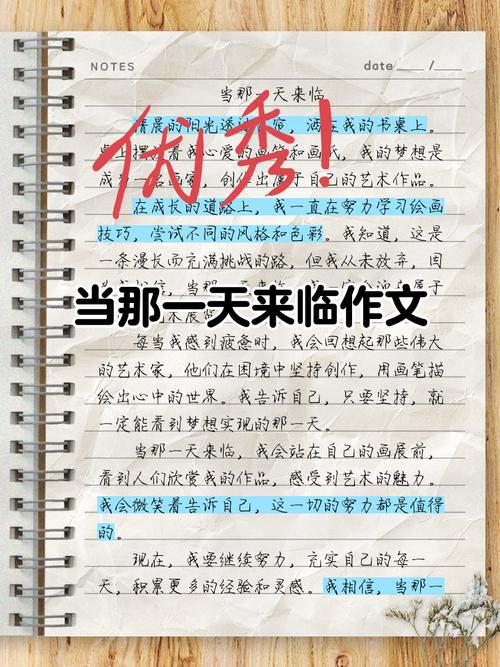 NOTES date ____ / ___
当那一天来临
优秀！
清晨的阳光透过，洒在我的书桌上。
桌上摆着我心爱的画笔和画纸，我的梦想是
成为一名画家，创作出属于自己的艺术作品。
在成长的道路上，我一直在努力学习绘画
技巧，尝试不同的风格和色彩。我知道，这是
一条漫长而充满挑战的路，但我从未放弃，因
当那一天来临作文
每当我感到疲惫时，我会回想起那些伟大
的艺术家，他们在困境中坚持创作，用画笔描
绘出心中的世界。我告诉自己，只要坚持，就
一定能看到梦想实现的那一天。
当那一天来临，我会站在自己的画展前，
看到人们欣赏我的作品，感受到艺术的魅力。
我会微笑着告诉自己，这一切的努力都是值得
的。
现在，我要继续努力，充实自己的每一
天，积累更多的经验和灵感。我相信，当那一